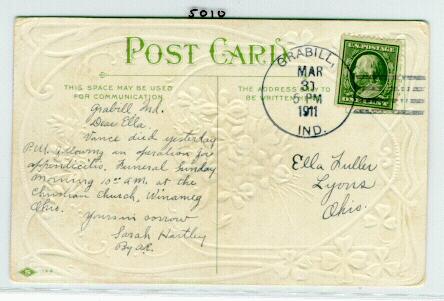 5010
POST CARD
THIS SPACE MAY BE USED
FOR COMMUNICATION
THE ADDRESS
TO
BE WRITTEN
GRABILL,
MAR
31
5 PM
1911
IND.
U.S. POSTAGE
ONE CENT
Grabill Ind.
Dear Ella.
Vance died yesterday
P.M. following an operation for
appendicitis. Funeral Sunday
morning 10 30 A.M. at the
Christian Church, Winameg
Ohio.
Yours in sorrow
Sarah Hartley
By
Ella Fuller
Lyons
Ohio.